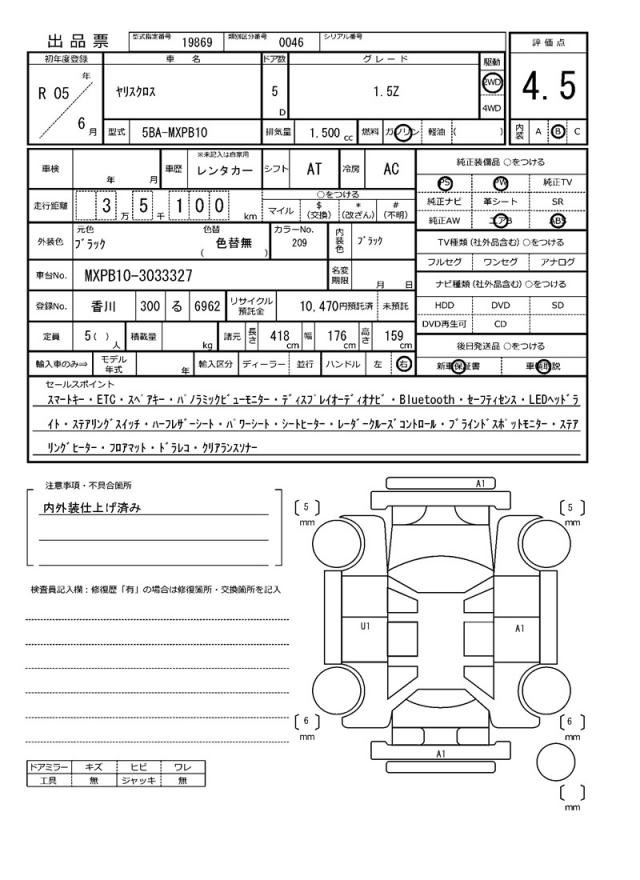 出品票 型式指定番号 19869 類別区分番号 0046 シリアル番号
評価点
4.5
初年度登録 車名 ドア数 グレード 駆動
R 05 年 6 月 ヤリスクロス 5 D 1.5Z 2WD 4WD
型式 5BA-MXPB10 排気量 1.500 cc 燃料 ガソリン 軽油 ( ) 内装 A B C
車検 年 月 車歴 ※未記入は自家用 レンタカー シフト AT 冷房 AC
走行距離 3 万 5 千 1 0 0 km ○をつける
マイル $ (交換) * (改ざん) # (不明)
外装色 元色 ブラック 色替 色替無 ( ) カラーNo. 209 内装色 ブラック
車台No. MXPB10-3033327 名変期限 月 日
登録No. 香川 300 る 6962 リサイクル預託金 10,470円預託済 未預託
定員 5( ) 人 積載量 kg 諸元 長さ 418 cm 幅 176 cm 高さ 159 cm
輸入車のみ⇒ モデル年式 年 輸入区分 ディーラー・並行 ハンドル 左・右
純正装備品 ○をつける
PS PW 純正TV
純正ナビ 革シート SR
純正AW エアB ABS
TV種類 (社外品含む) ○をつける
フルセグ ワンセグ アナログ
ナビ種類 (社外品含む) ○をつける
HDD DVD SD
DVD再生可 CD
後日発送品 ○をつける
新車保証書 車輌取説
セールスポイント
スマートキー・ETC・スペアキー・パノラミックビューモニター・ディスプレイオーディオナビ・Bluetooth・セーフティセンス・LEDヘッドラ
イト・ステアリングスイッチ・ハーフレザーシート・パワーシート・シートヒーター・レーダークルーズコントロール・ブラインドスポットモニター・ステア
リングヒーター・フロアマット・ドラレコ・クリアランスソナー
注意事項・不具合箇所
内外装仕上げ済み
検査員記入欄：修復歴「有」の場合は修復箇所・交換箇所を記入
ドアミラー キズ ヒビ ワレ
工具 無 ジャッキ 無
A1
5 mm 5 mm
U1 A1
6 mm 6 mm
A1
mm